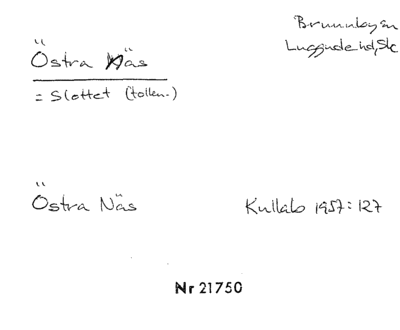 Östra Näs
= Slottet (tollen.)
Brunnbyn sn
Luggude hd, Sk
Östra Näs
Kullabo 1957: 127
Nr 21750